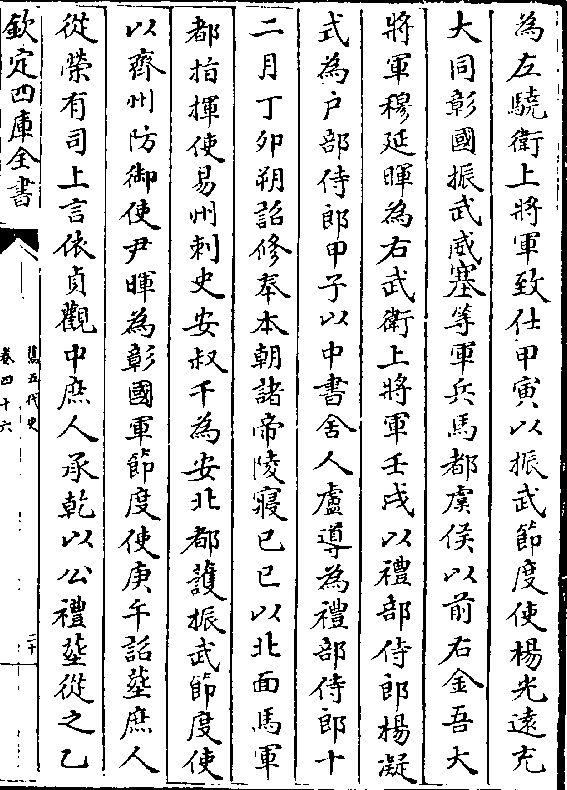 為左驍衛上將軍致仕甲寅以振武節度使楊光遠充
大同彰國振武威塞等軍兵馬都虞侯以前右金吾大
將軍穆延暉為右武衛上將軍壬戌以禮部侍郎楊凝
式為户部侍郎甲子以中書舍人盧導為禮部侍郎十
二月丁卯朔詔修奉本朝諸帝陵寢己巳以北面馬軍
都指揮使易州刺史安叔千為安北都䕶振武節度使
以齊州防御使尹暉為彰國軍節度使庚午詔塟庶人
從榮有司上言依貞觀中庶人承乾以公禮塟從之乙
欽定四庫全書
舊五代史
卷四十六
二十